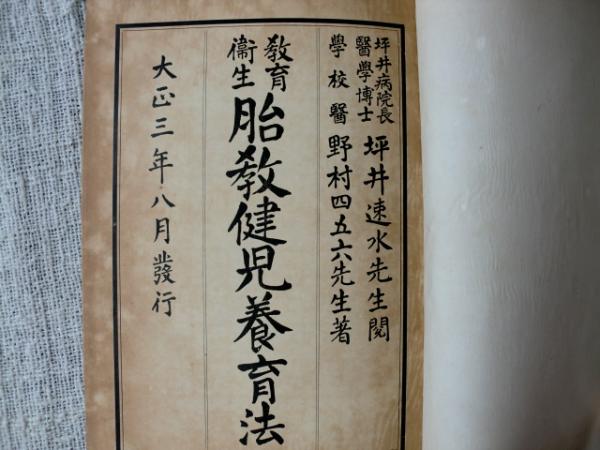 坪井病院長
醫學博士
坪井速水先生閱
學校醫
野村四五六先生著
教育
衞生
胎教健児養育法
大正三年八月發行